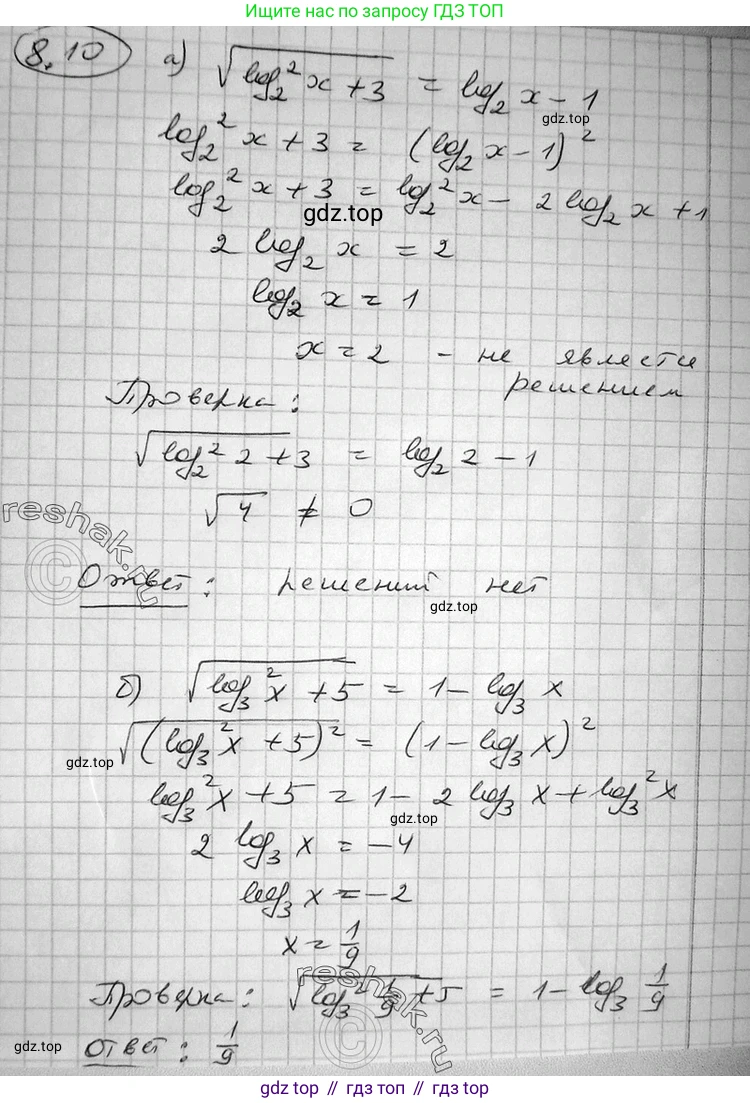 Ищите нас по запросу ГДЗ ТОП
8.10 а) √(log₂²x + 3) = log₂x - 1
gdz.top
log₂²x + 3 = (log₂x - 1)²
log₂²x + 3 = log₂²x - 2 log₂x + 1
gdz.top
2 log₂x = 2
log₂x = 1
x = 2 - не явлести
решением
Проверка:
√(log₂²2 + 3) = log₂2 - 1
√4 ≠ 0
reshak.ru
Ответ: решений нет
gdz.top
б) √(log₃²x + 5) = 1 - log₃x
√(log₃²x + 5)² = (1 - log₃x)²
gdz.top
log₃²x + 5 = 1 - 2 log₃x + log₃²x
gdz.top
2 log₃x = -4
log₃x = -2
x = 1/9
Проверка: √(log₃² 1/9 + 5) = 1 - log₃ 1/9
reshak.ru
gdz.top
Ответ: 1/9
gdz top // гдз топ // gdz top